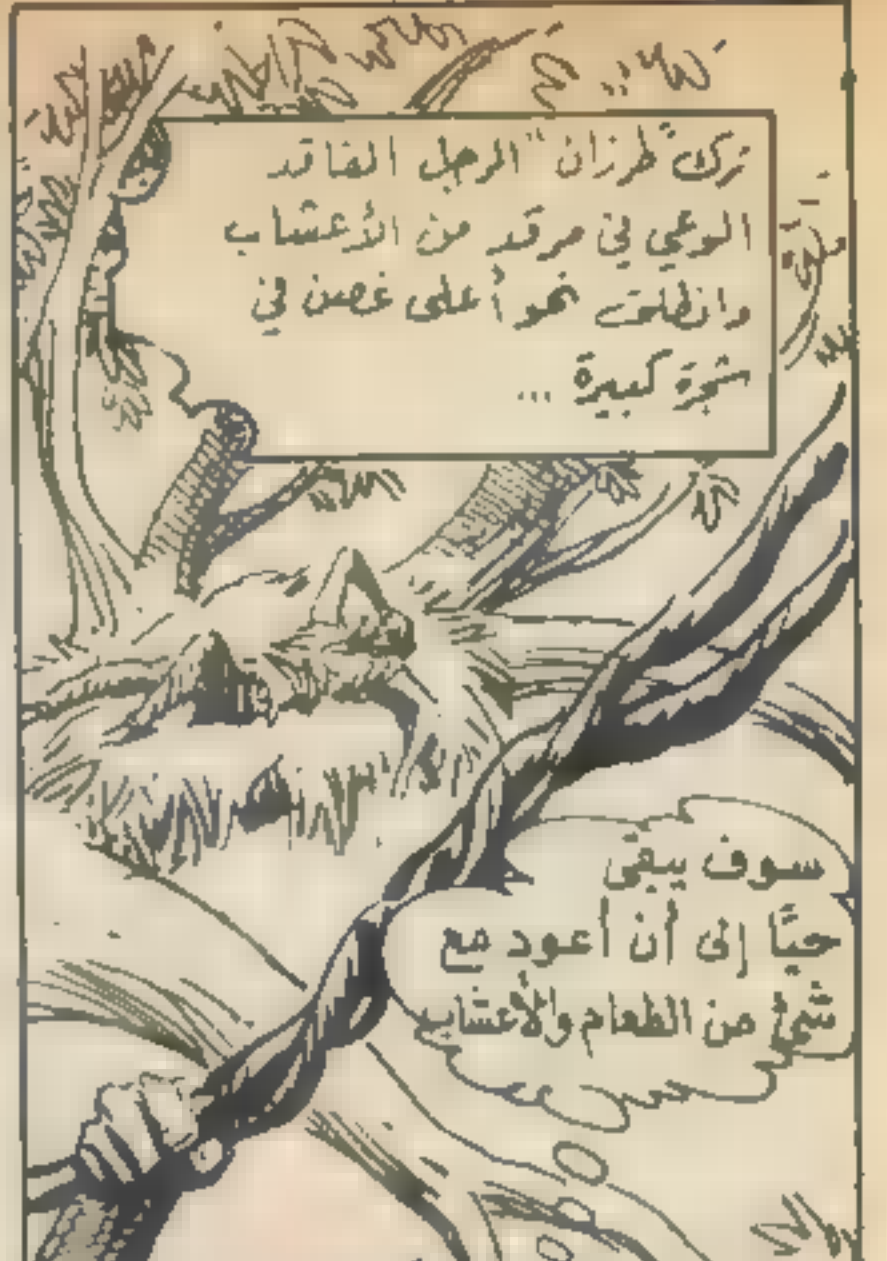 ترك "طرزان" الرجل الفاقد
الوعي في مرقد من الأعشاب
وانطلق نحو أعلى غصن في
شجرة كبيرة ...
سوف يبقى
حيًّا إلى أن أعود مع
شئ من الطعام والأعشاب